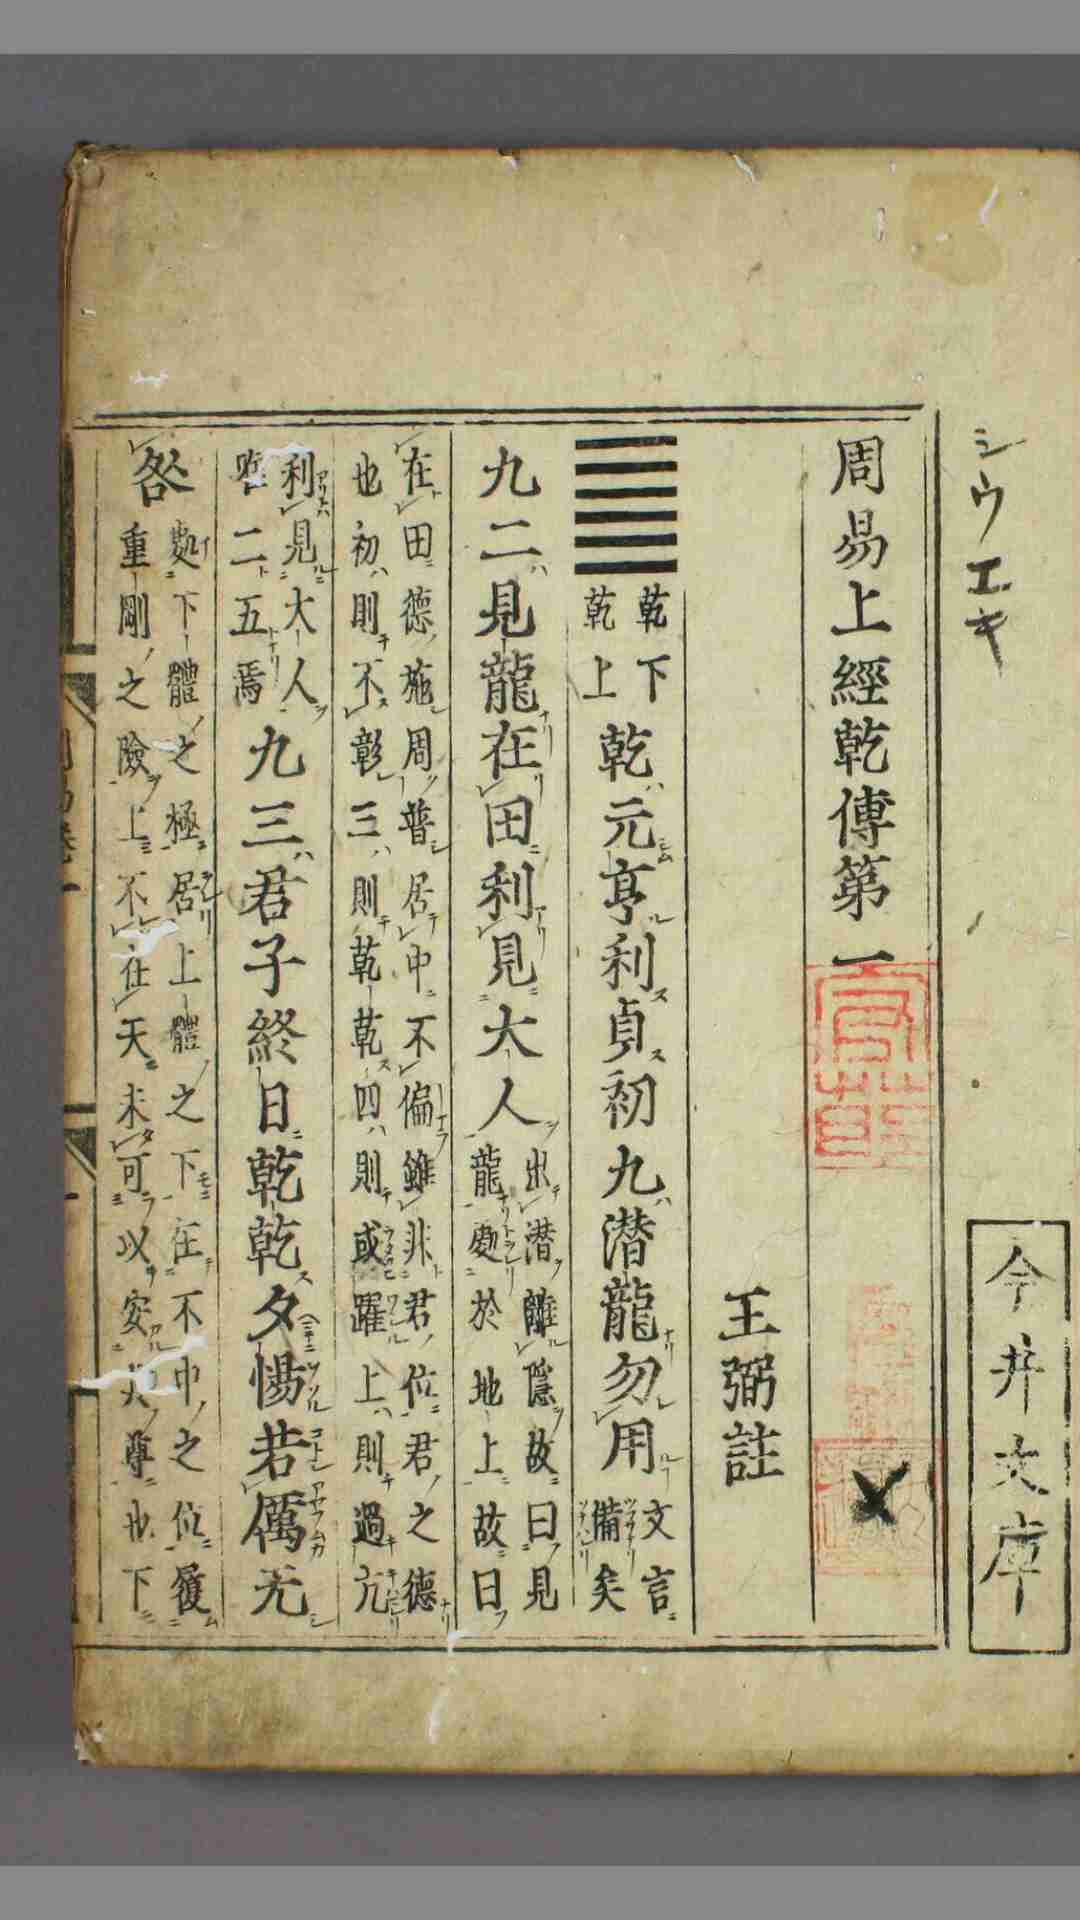 シウエキ
今井文庫
周易上經乾傳第一
王弼註
乾下
乾上
乾元亨利貞初九潜龍勿用
文言
備矣
九二見龍在田利見大人
出潜離隠故曰見
龍處於地上故曰
在田德施周普居中不偏雖非君位君之德
也初則不彰三則乾乾四則或躍上則過亢
利見大人
唯二五焉
九三君子終日乾乾夕惕若厲无
咎
處下體之極居上體之下在不中之位履
重剛之險上不在天未可以安其尊也下